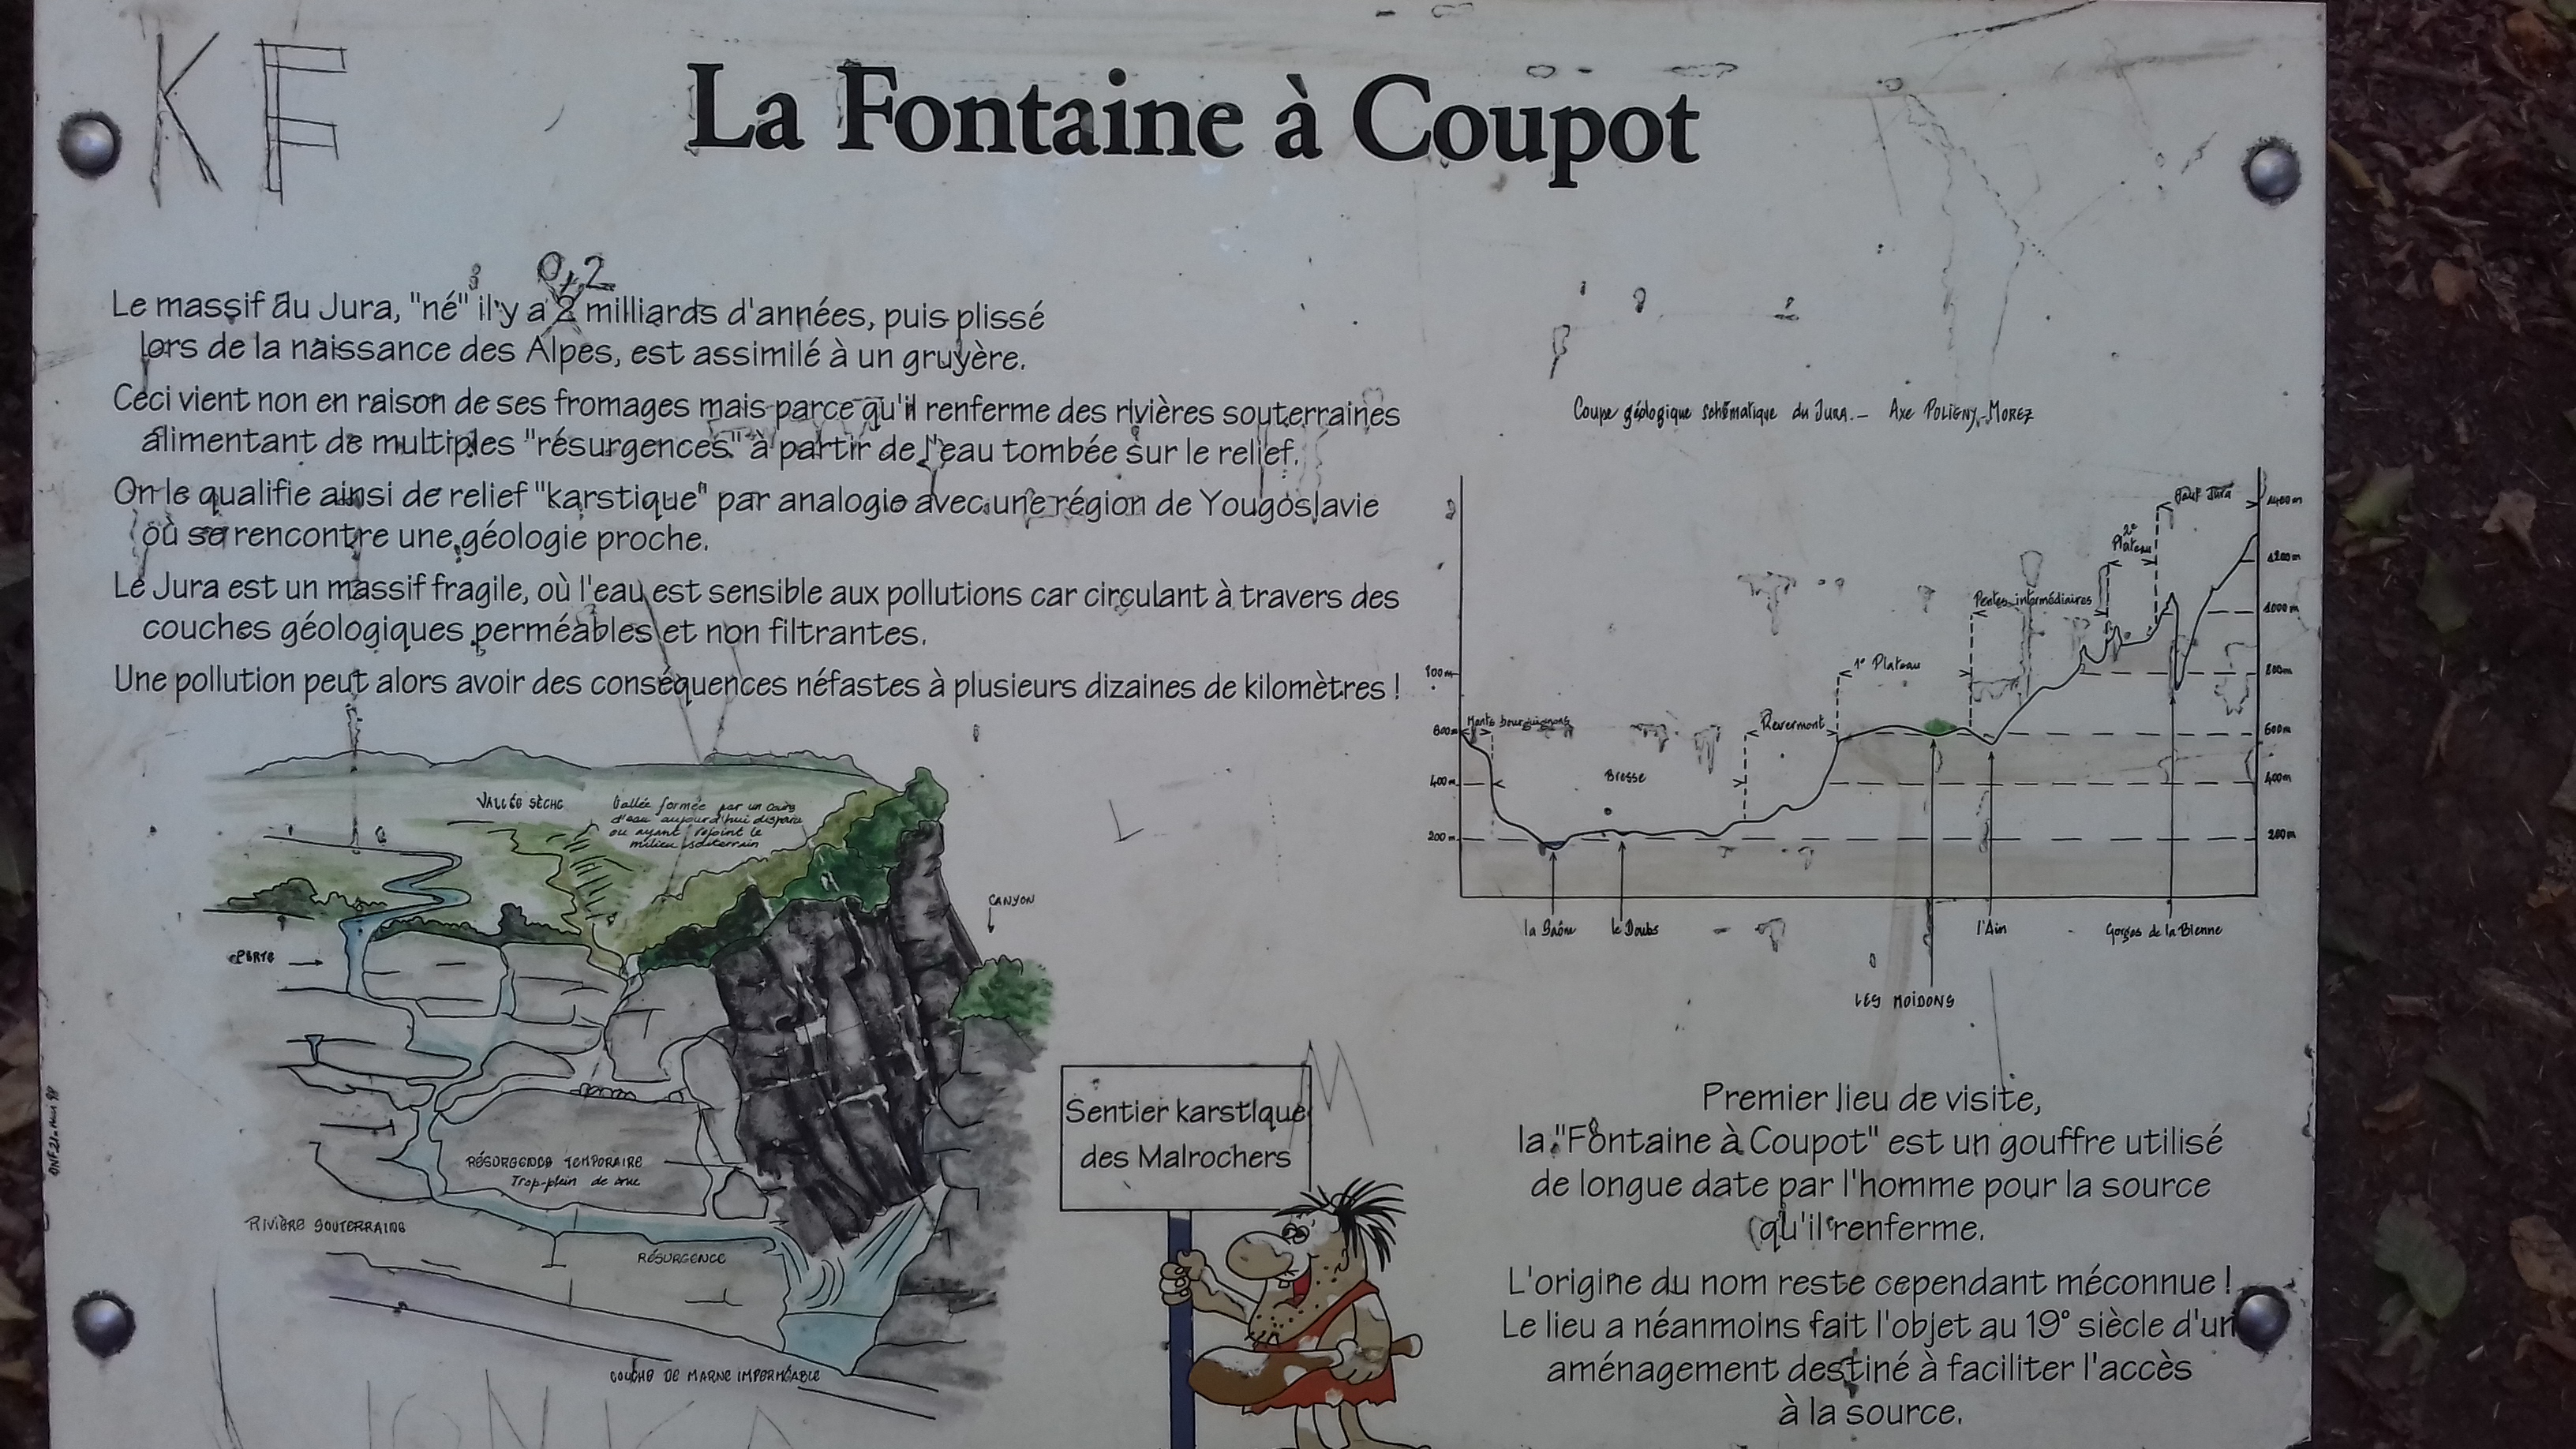 KF
La Fontaine à Coupot
0,2
Le massif du Jura, "né" il y a 2 milliards d'années, puis plissé
lors de la naissance des Alpes, est assimilé à un gruyère.
Ceci vient non en raison de ses fromages mais parce qu'il renferme des rivières souterraines
alimentant de multiples "résurgences" à partir de l'eau tombée sur le relief.
On le qualifie ainsi de relief "karstique" par analogie avec une région de Yougoslavie
où se rencontre une géologie proche.
Le Jura est un massif fragile, où l'eau est sensible aux pollutions car circulant à travers des
couches géologiques perméables et non filtrantes.
Une pollution peut alors avoir des conséquences néfastes à plusieurs dizaines de kilomètres !
Coupe géologique schématique du JURA.- Axe POLIGNY-MOREZ
Haut Jura
1400m
2e
Plateau
1200m
Pentes intermédiaires
1000m
1e Plateau
800m
800m
Monts bourguignons
Revermont
600m
600m
Bresse
400m
400m
200m
200m
la Saône
le Doubs
l'Ain
Gorges de la Bienne
LES MOIDONS
VALLÉE SÈCHE
Vallée formée par un cours
d'eau aujourd'hui disparu
ou ayant rejoint le
milieu souterrain
CANYON
PERTE
RÉSURGENCE TEMPORAIRE
Trop-plein de crue
RIVIÈRE SOUTERRAINE
RÉSURGENCE
COUCHE DE MARNE IMPERMÉABLE
Sentier karstique
des Malrochers
Premier lieu de visite,
la "Fontaine à Coupot" est un gouffre utilisé
de longue date par l'homme pour la source
qu'il renferme.
L'origine du nom reste cependant méconnue !
Le lieu a néanmoins fait l'objet au 19° siècle d'un
aménagement destiné à faciliter l'accès
à la source.